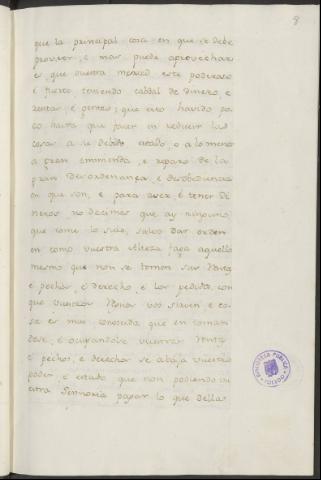 8
que la principal cosa en que se debe
proveer, e mas puede aprovechar
es que vuestra merced este poderoso
é fuerte, teniendo cabdal de dinero, e
rentas, e gentes; que esto havido po
co havra que facer en reducir las
cosas a su debido estado, o a lo menos
a gran enmienda, e reparo de la
gran desordenança, e desobediencia
en que son, e para aver e tener di
neros no decimos que ay ninguno
que tome lo suio, salvo dar orden
en como vuestra Alteza faga aquello
mesmo que non se tomen sus Rentas
e pechos, é derechos, e los pedidos con
que vuestros Reinos vos sirven e co
sa es mui conoscida que en toman
dose, é ocupandose vuestras Rentas
e pechos, e derechos se abaja vuestro
poder, e estado, que non podiendo vu
estra Sennoria pagar lo que della
BIBLIOTECA PUBLICA
TOLEDO